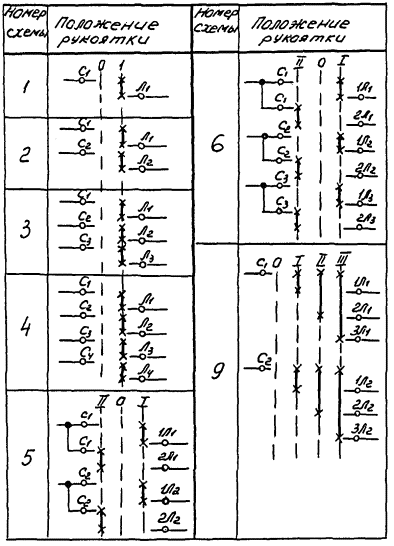 Номер схемы Положение рукоятки
0 1
1
С1
Л1
2
С1
Л1
С2
Л2
3
С1
Л1
С2
Л2
С3
Л3
4
С1
Л1
С2
Л2
С3
Л3
С4
Л4
5
II 0 I
С1
С1
1Л1
2Л1
С2
1Л2
С2
2Л2
Номер схемы Положение рукоятки
6
II 0 I
С1
1Л1
С1
2Л1
С2
1Л2
С2
2Л2
С3
1Л3
С3
2Л3
9
С1 0 I II III
1Л1
2Л1
3Л1
С2
1Л2
2Л2
3Л2